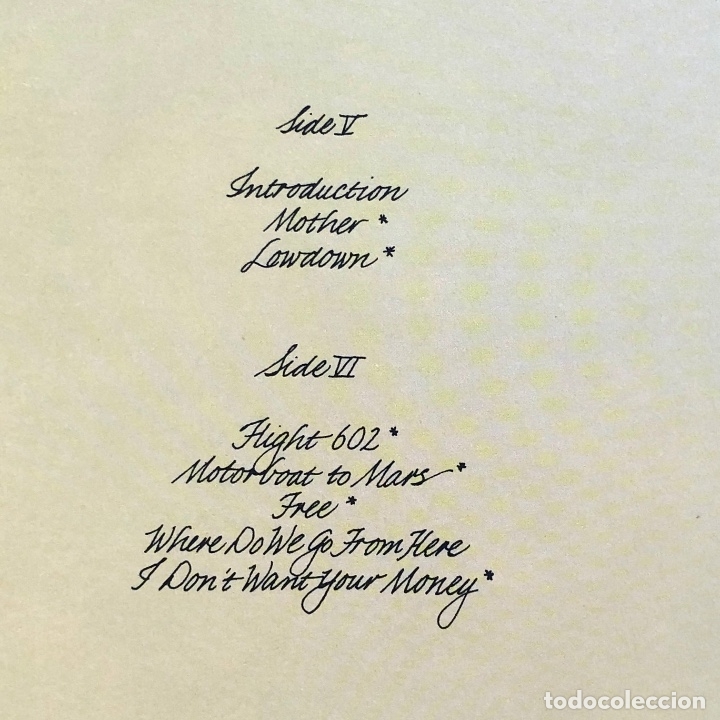 Side V
Introduction
Mother *
Lowdown *
Side VI
Flight 602 *
Motorboat to Mars *
Free *
Where Do We Go From Here
I Don't Want Your Money *
todocoleccion